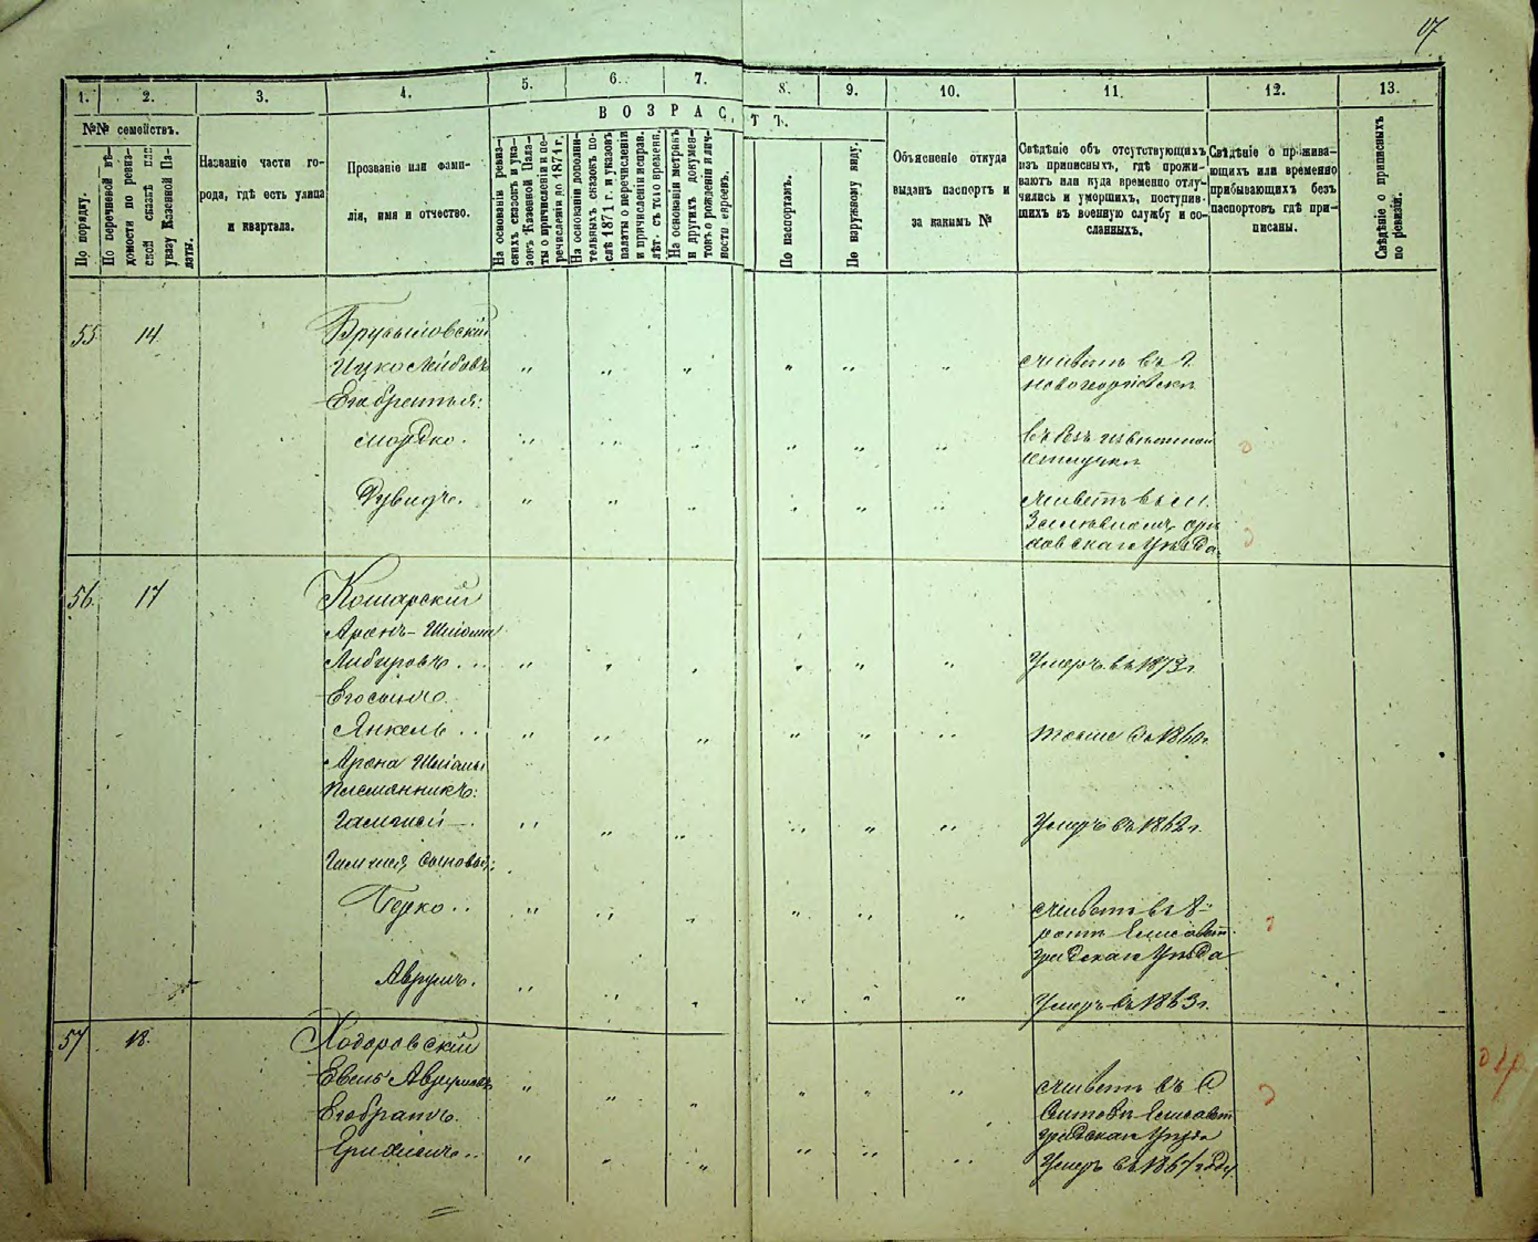 17
1. 2. 3. 4. 5. 6. 7. 8. 9. 10. 11. 12. 13.
№№ семействъ.
По порядку.
По перечневой вѣ-
домости по ревиз-
ской сказкѣ или
указу Казенной Па-
латы.
Названіе части го-
рода, гдѣ есть улица
и квартала.
Прозваніе или фами-
лія, имя и отчество.
ВОЗРАСТЪ.
На основаніи ревиз-
скихъ сказокъ и ука-
зокъ Казенной Пала-
ты о причисленіи и пе-
речисленіи до 1871 г.
На основаніи дополни-
тельныхъ сказокъ по-
слѣ 1871 г. и указовъ
палаты о перечисленіи
и причисленіи исправ.
лѣт. съ того времени.
На основаніи метрикъ
и другихъ докумен-
товъ о рожденіи и лич-
ности евреевъ.
По паспортамъ.
По наружному виду.
Объясненіе откуда
выданъ паспортъ и
за какимъ №
Свѣдѣніе объ отсутствующихъ
изъ приписныхъ, гдѣ прожи-
ваютъ или куда временно отлу-
чились и умершихъ, поступив-
шихъ въ военную службу и со-
сланныхъ.
Свѣдѣніе о прожива-
ющихъ или временно
прибывающихъ безъ
паспортовъ гдѣ при-
писаны.
Свѣдѣніе о приписныхъ
по ревизіи.
55 14 Брусиловскій
Ицко Лейбовъ " " " " " " живетъ въ г.
Новогеоргіевскѣ
Его братья:
Мордко. " " " " " " въ безъизвѣстной
отлучкѣ
Дувидъ. " " " " " " живетъ въ м.
уѣзда
56 17 Кошарскій
Аронъ-Шліома
" " " " " " Умеръ въ 1873 г.
Его сынъ
Янкель .. " " " " " " тоже въ 1860 г.
Арона Шліомы
племянникъ:
" " " " " " Умеръ въ 1862 г.
сыновья:
Берко .. " " " " " " живетъ въ
Елисавет-
градскаго уѣзда
Аврумъ. " " " " " " Умеръ въ 1863 г.
57 18. Ходоровскій
Евель Аврумовъ " " " " " " живетъ въ
Елисавет
градскаго уѣзда
Его братъ.
" " " " " " Умеръ въ 1867 году